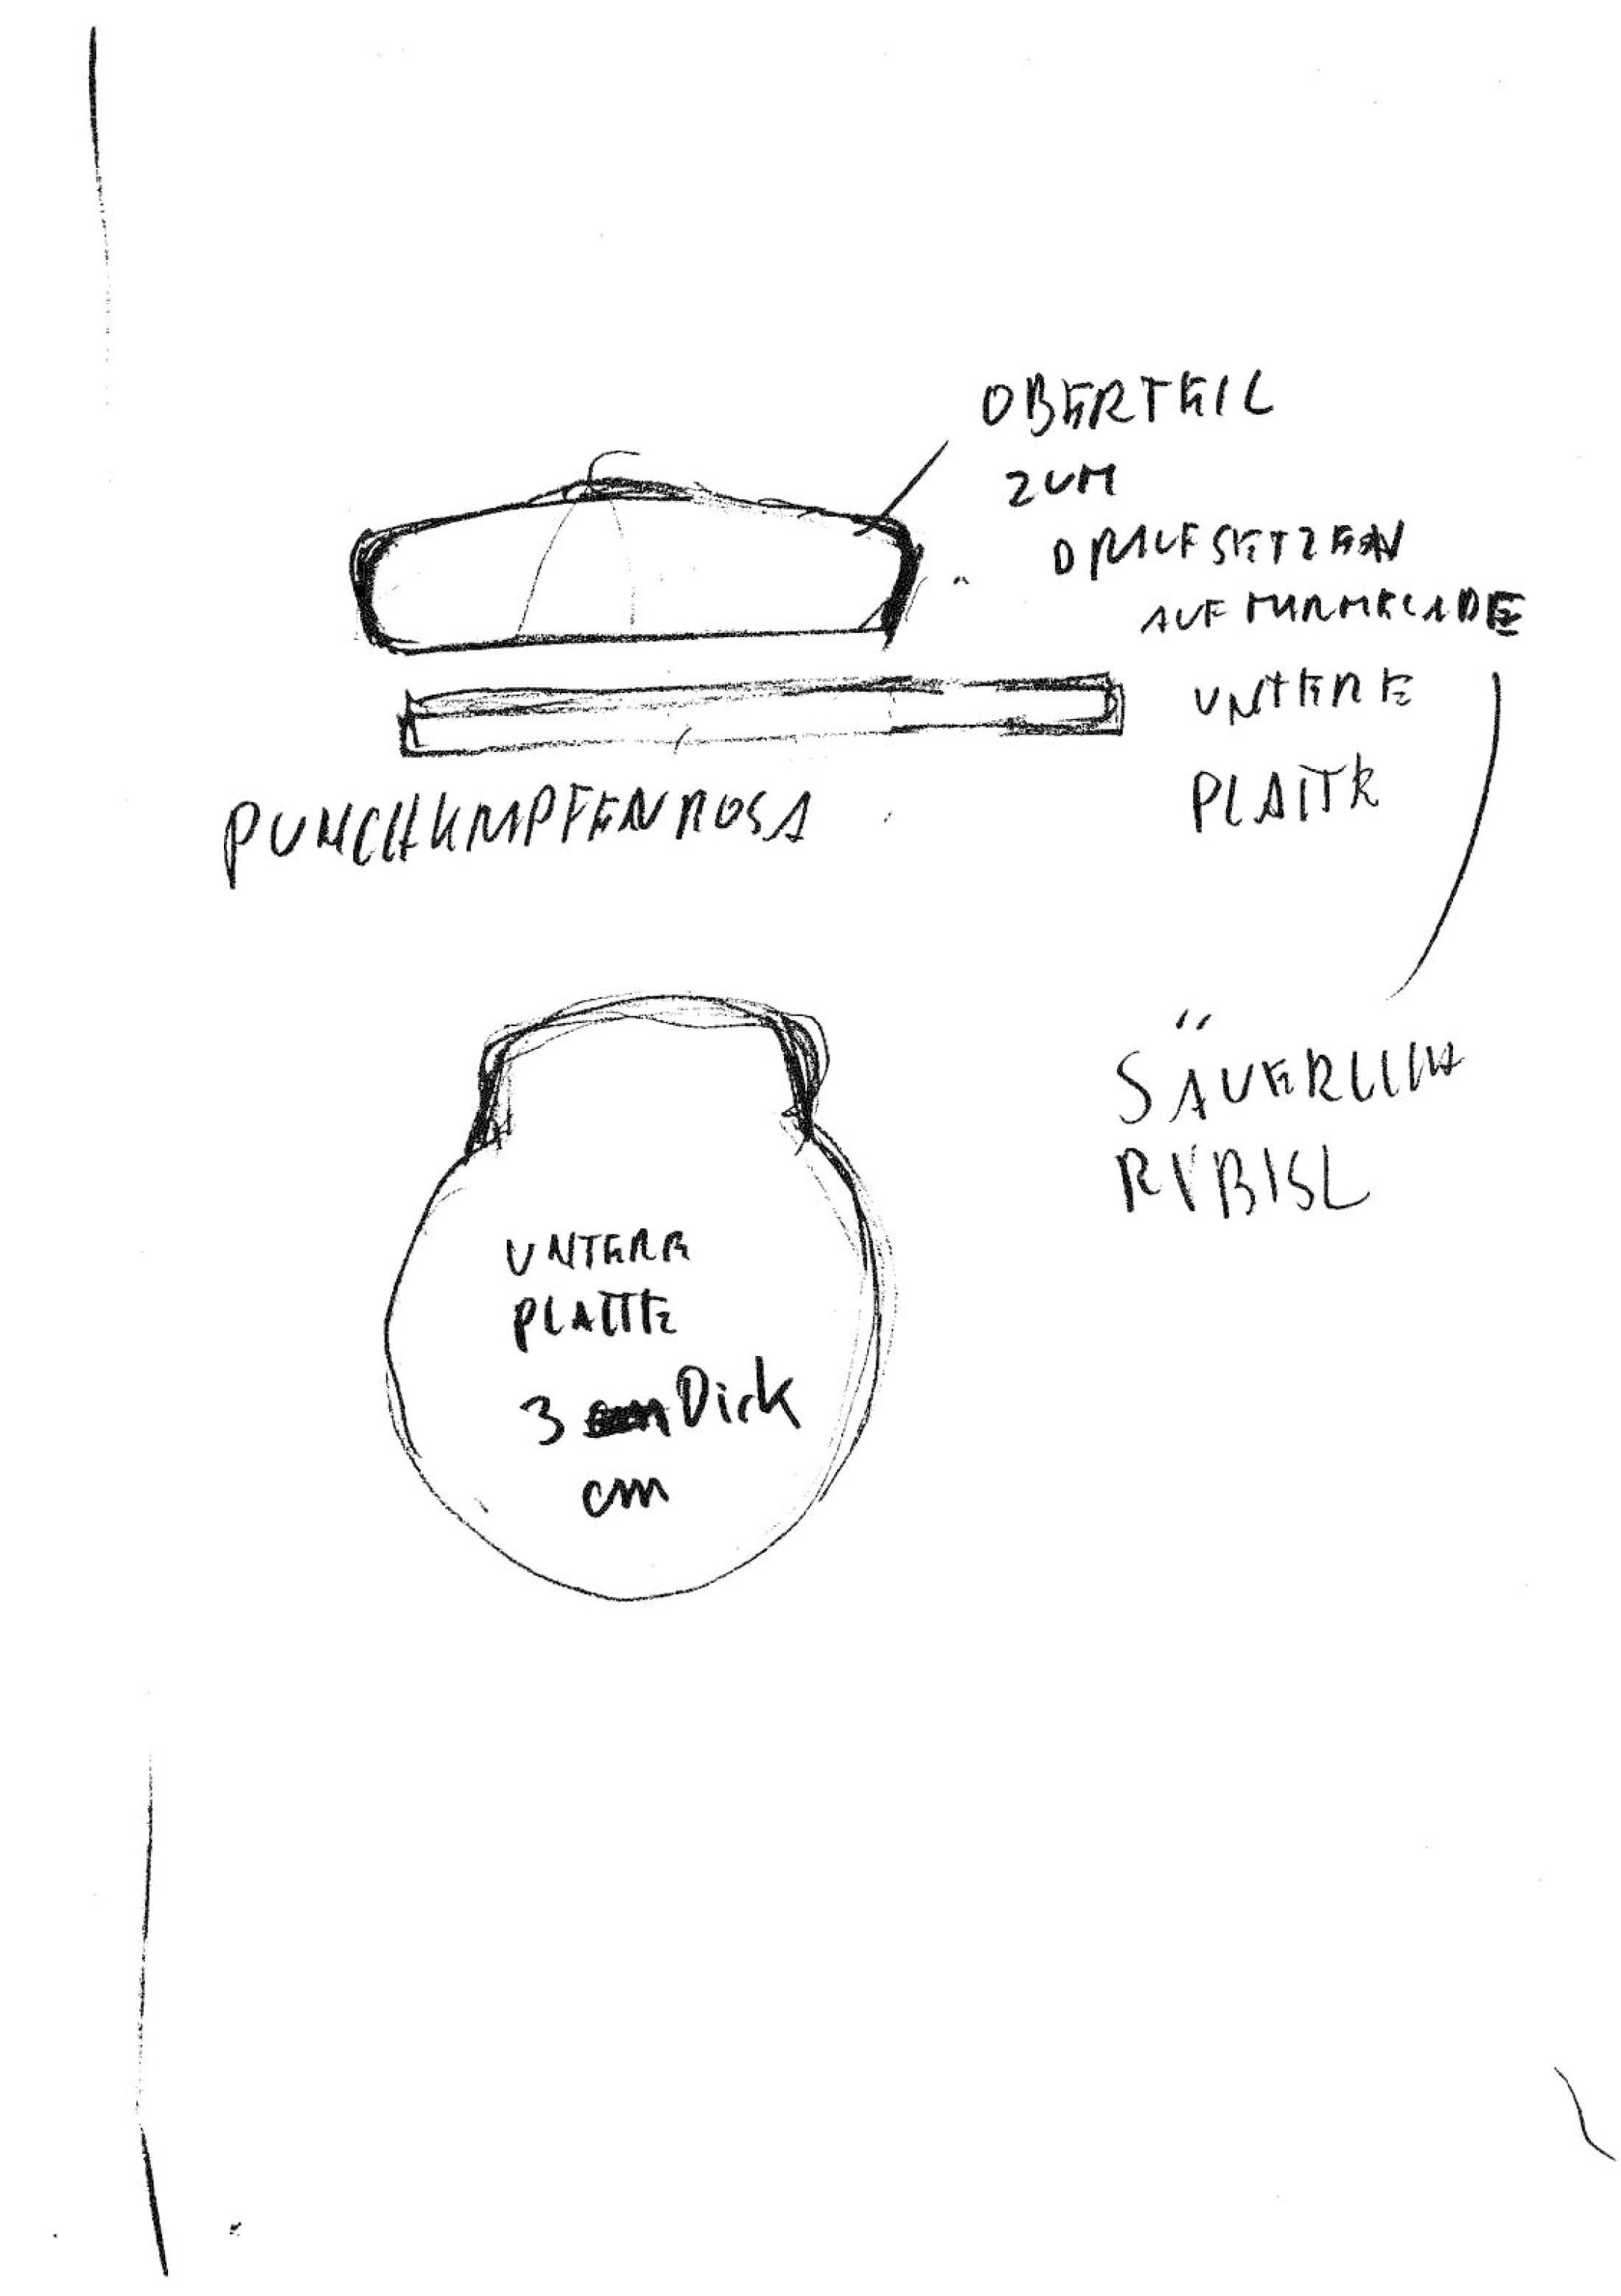 OBERTEIL
ZUM
DRAUFSETZEN
AUF MARMELADE
UNTERE
PLATTE
PUNCHKRAPFENROSA
SÄUERLICH
RIBISL
UNTERE
PLATTE
3 Dick
cm